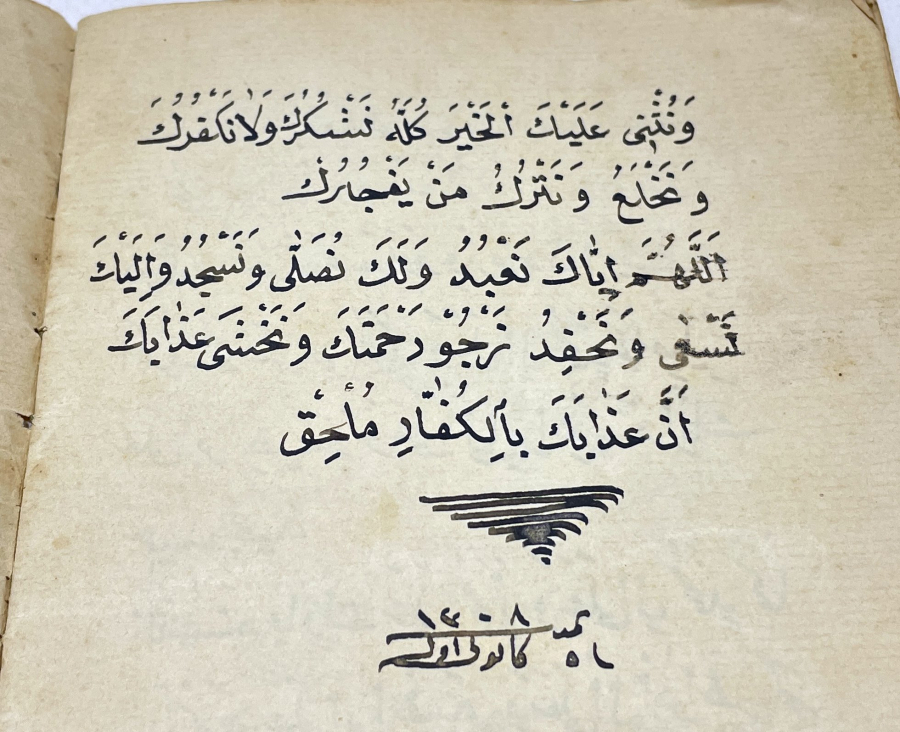 وَنُثْنِى عَلَيْكَ الْخَيْرَ كُلَّهُ نَشْكُرُكَ وَلَا نَكْفُرُكَ
وَنَخْلَعُ وَنَتْرُكُ مَنْ يَفْجُرُكَ
اَللّٰهُمَّ اِيَّاكَ نَعْبُدُ وَلَكَ نُصَلِّى وَنَسْجُدُ وَاِلَيْكَ
نَسْعٰى وَنَحْفِدُ نَرْجُو رَحْمَتَكَ وَنَخْشٰى عَذَابَكَ
اَنَّ عَذَابَكَ بِالْكُفَّارِ مُلْحِقٌ
١٣٠٨
كانون اول